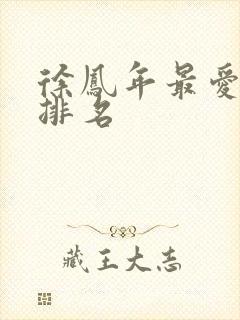 徐鳳年最愛
排名
藏王大志